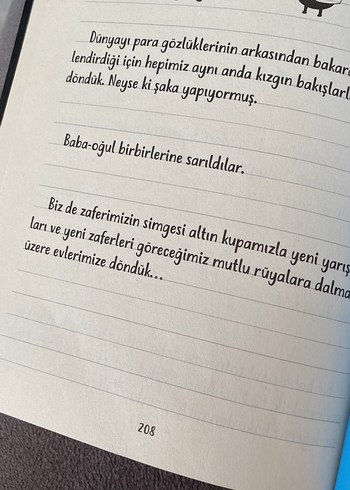 Dünyayı para gözlüklerinin arkasından
lendirdiği için hepimiz aynı anda kızgın
döndük. Neyse ki şaka yapıyormuş.
Baba-oğul birbirlerine sarıldılar.
Biz de zaferimizin simgesi altın kupamızla yeni
ları ve yeni zaferleri göreceğimiz mutlu rüyalara
üzere evlerimize döndük...
208